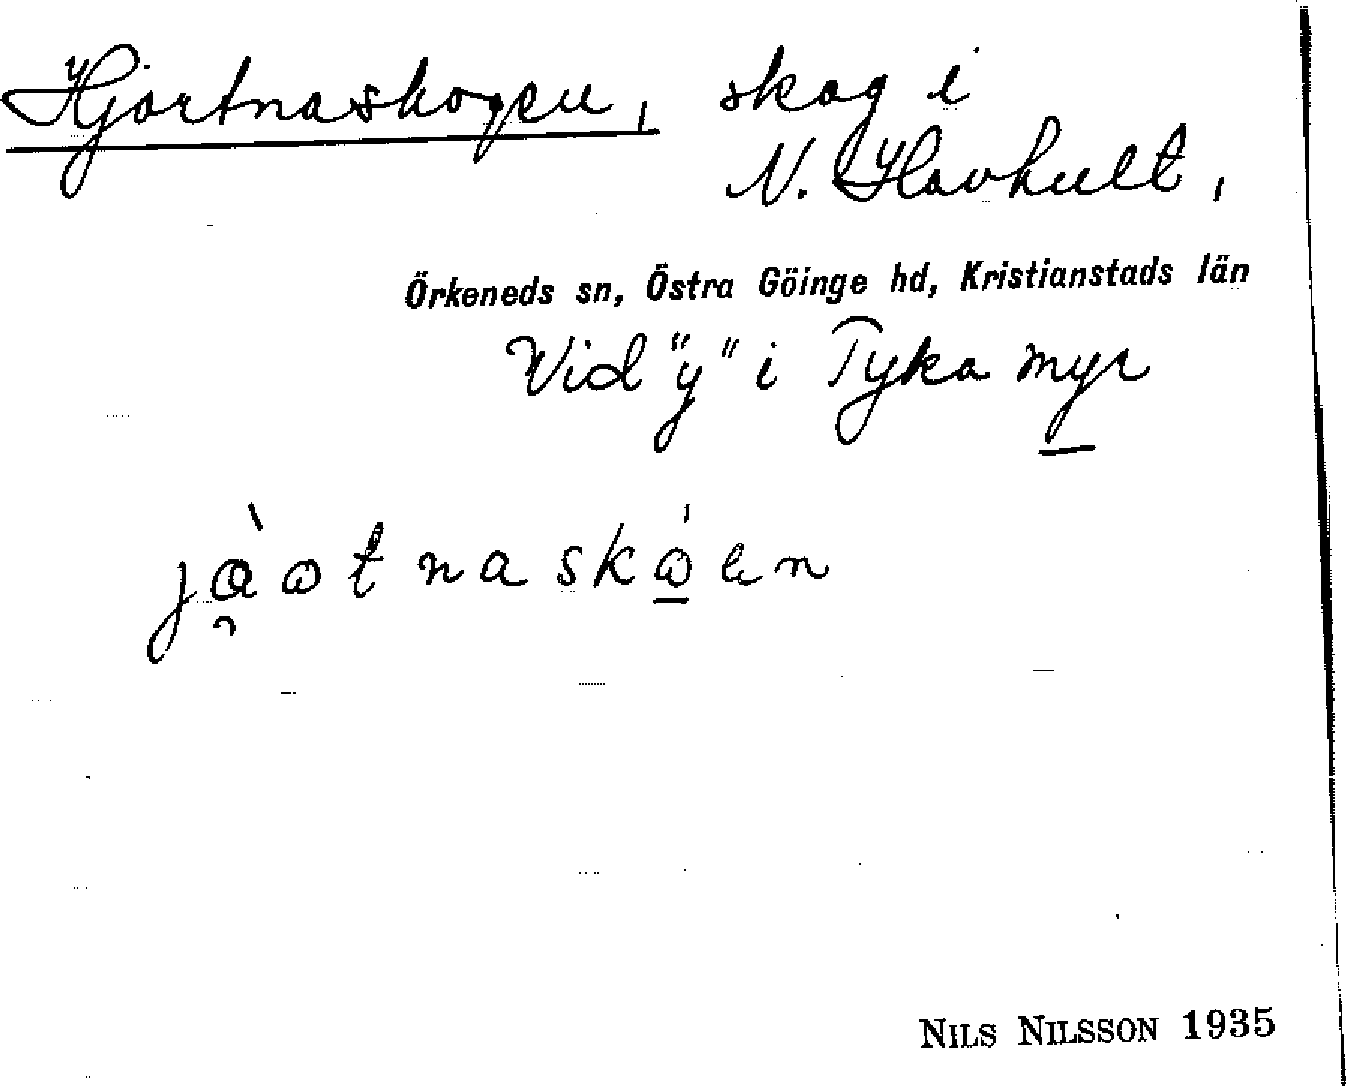 Hjortnaskogen, skog i
N. Havhult,
Örkeneds sn, Östra Göinge hd, Kristianstads län
Vid "y" i Tyka myr
NILS NILSSON 1935